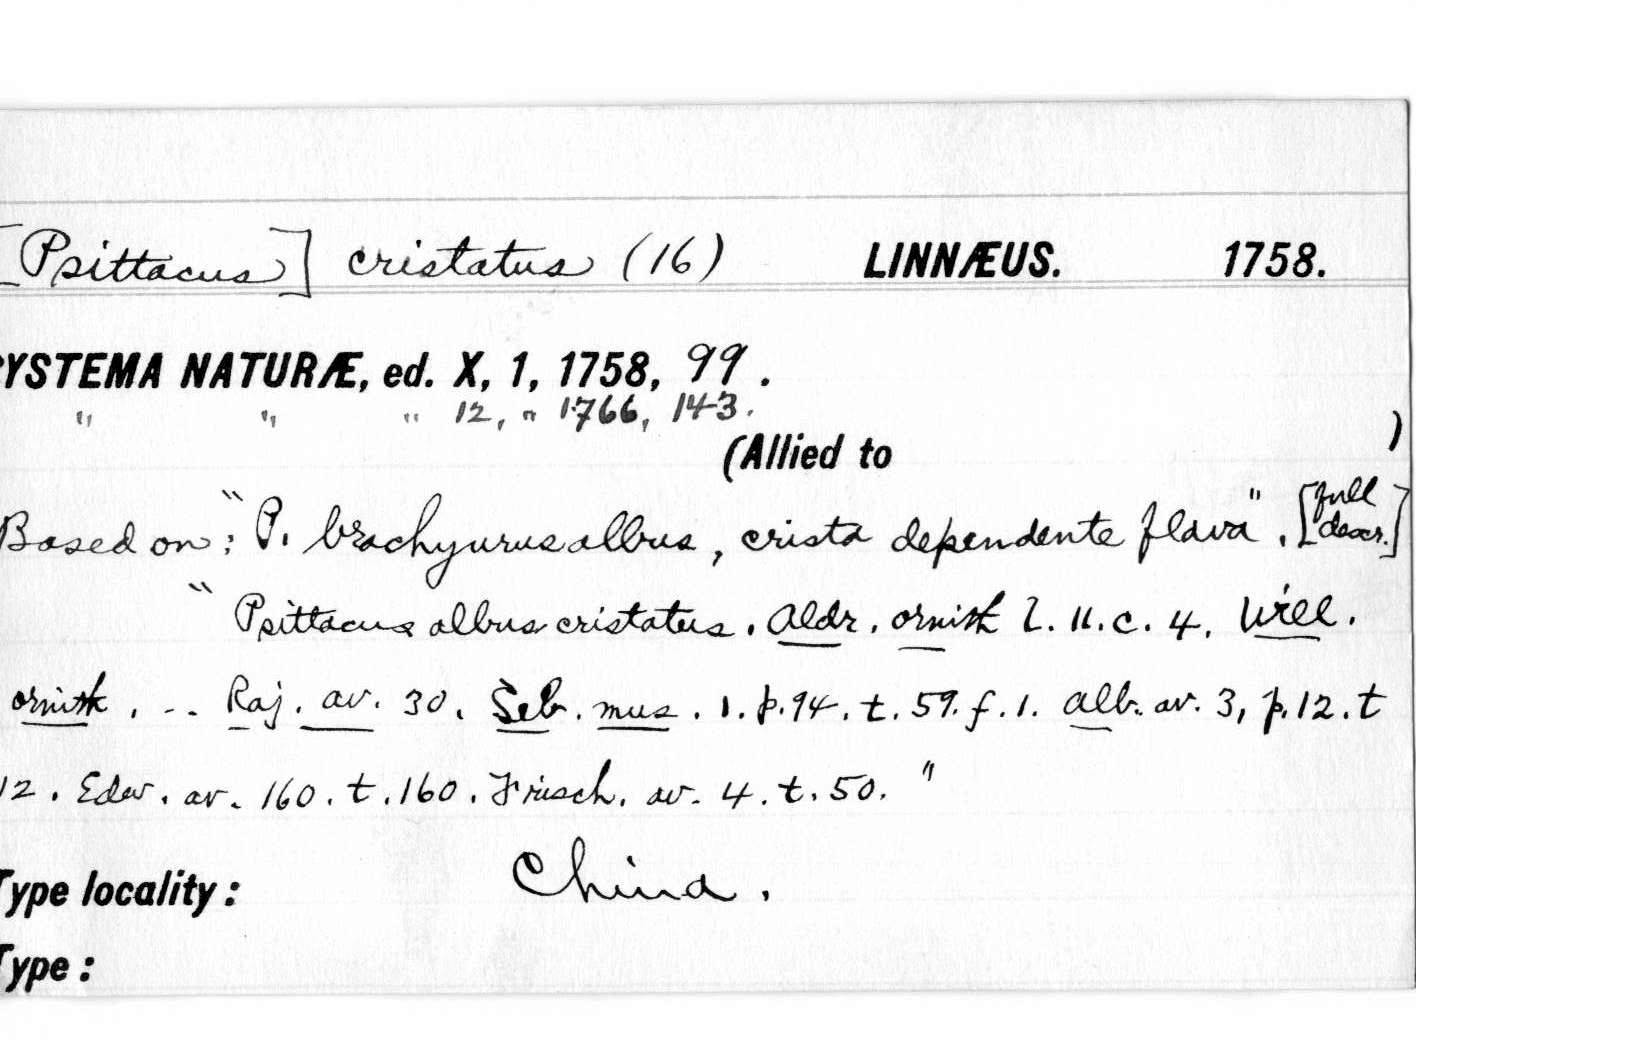 [Psittacus] cristatus (16) LINNÆUS. 1758.
YSTEMA NATURÆ, ed. X, 1, 1758, 99.
" " " 12, " 1766, 143.
(Allied to )
Based on: "P. brachyurus albus, crista dependente flava". [full descr.]
"Psittacus albus cristatus. Aldr. ornith l. 11. c. 4. Will.
ornith. -- Raj. av. 30. Seb. mus. 1. p. 94. t. 59. f. 1. alb. av. 3, p. 12. t
12. Edw. av. 160. t. 160. Frisch. av. 4. t. 50."
Type locality: China.
Type: